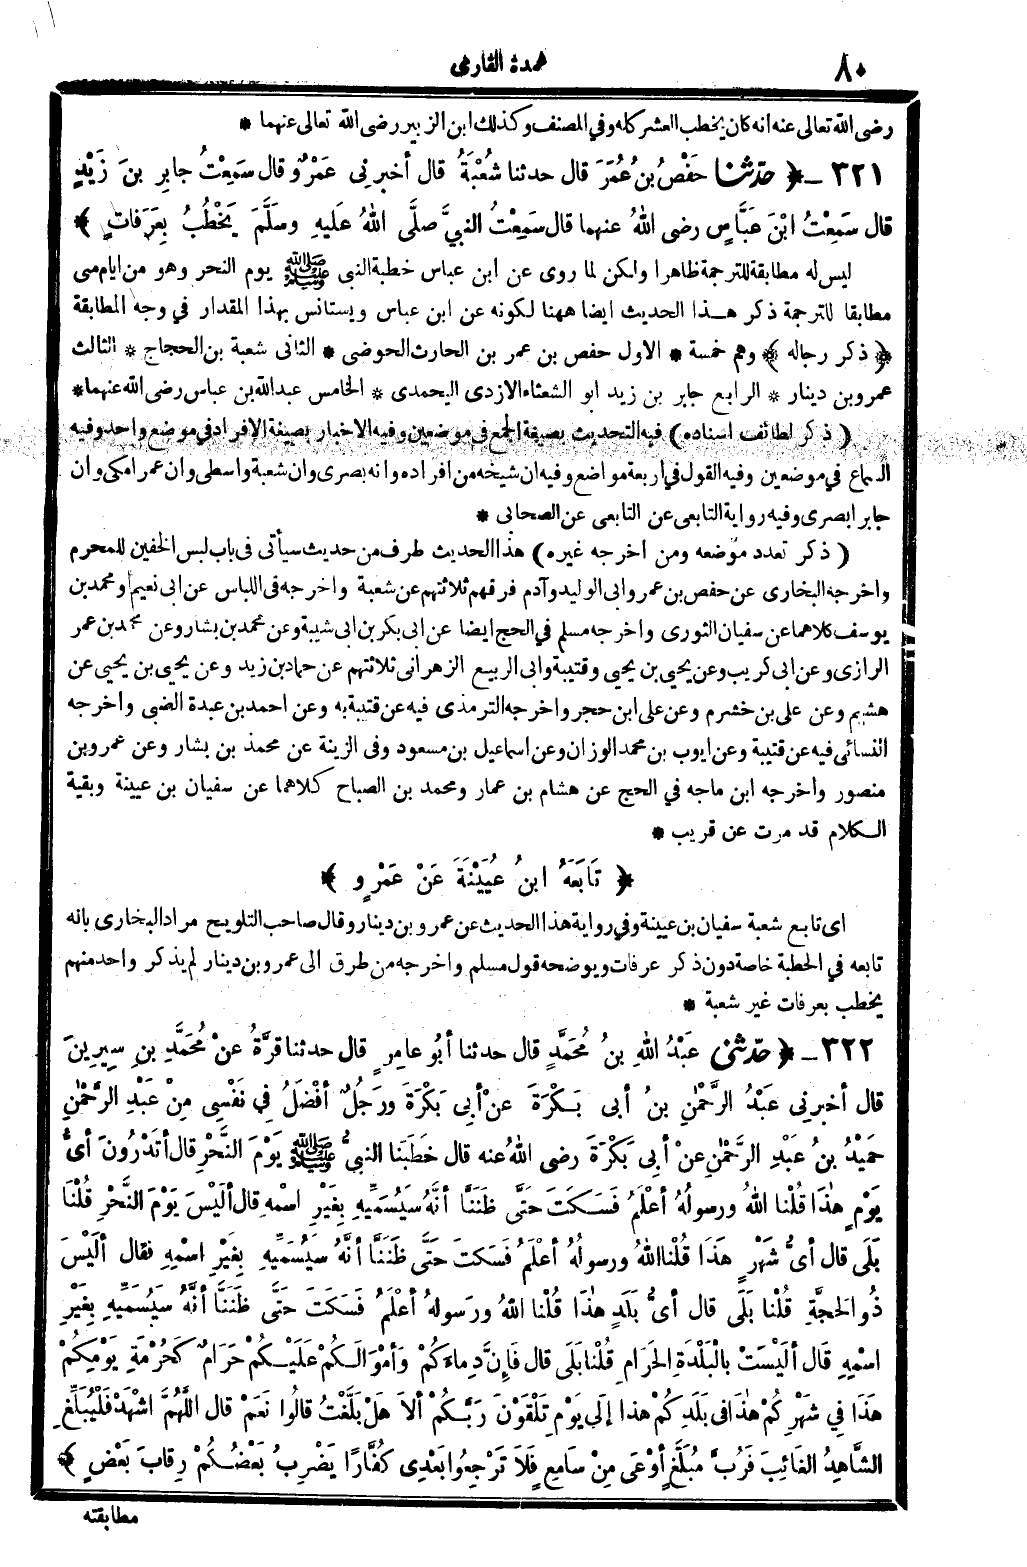 ٨٠
عمدة القارى
رضى الله تعالى عنه انه كان يخطب العشر كله وفي المصنف وكذلك ابن الزبير رضى الله تعالى عنهما *
٣٢١ ـ ﴿ حَدَّثَنَا حَفْصُ بنُ عُمَرَ قال حدثنا شُعْبَةُ قال أخبرنِى عَمْرٌو قال سَمِعْتُ جابِرَ بنَ زَيْدٍ
قال سَمِعْتُ ابْنَ عَبَّاسٍ رضى اللهُ عنهما قال سَمِعْتُ النبىَّ صلَّى اللهُ عَلَيهِ وسَلَّمَ يَخْطُبُ بِعَرَفاتٍ ﴾
ليس له مطابقة للترجمة ظاهرا ولكن لما روى عن ابن عباس خطبة النبى ﷺ يوم النحر وهو من ايام منى
مطابقا للترجمة ذكر هــذا الحديث ايضا ههنا لكونه عن ابن عباس ويستانس بهذا المقدار في وجه المطابقة
﴿ ذكر رجاله ﴾ وهم خمسة * الاول حفص بن عمر بن الحارث الحوضى * الثانى شعبة بن الحجاج * الثالث
عمرو بن دينار * الرابع جابر بن زيد ابو الشعثاء الازدى اليحمدى * الخامس عبدالله بن عباس رضى الله عنهما *
( ذكر لطائف اسناده ) فيه التحديث بصيغة الجمع في موضعين وفيه الاخبار بصيغة الإفراد في موضع واحد وفيه
السماع في موضعين وفيه القول في اربعة مواضع وفيه ان شيخه من افراده وانه بصرى وان شعبة واسطى وان عمرا مكى وان
جابرا بصرى وفيه رواية التابعى عن التابعى عن الصحابى *
( ذكر تعدد موضعه ومن اخرجه غيره ) هذا الحديث طرف من حديث سيأتى فى باب لبس الخفين للمحرم
واخرجه البخارى عن حفص بن عمر وابى الوليد وآدم فرقهم ثلاثتهم عن شعبة واخرجه فى اللباس عن ابى نعيم ومحمد بن
يوسف كلاهما عن سفيان الثورى واخرجه مسلم في الحج ايضا عن ابى بكر بن ابى شيبة وعن محمد بن بشار وعن محمد بن عمر
الرازى وعن ابى كريب وعن يحيى بن يحيى وقتيبة وابى الربيع الزهرانى ثلاثتهم عن حماد بن زيد وعن يحيى بن يحيى عن
هشيم وعن على بن خشرم وعن على ابن حجر واخرجه الترمذى فيه عن قتيبة به وعن احمد بن عبدة الضبى واخرجه
النسائى فيه عن قتيبة وعن ايوب بن محمد الوزان وعن اسماعيل بن مسعود وفى الزينة عن محمد بن بشار وعن عمرو بن
منصور واخرجه ابن ماجه في الحج عن هشام بن عمار ومحمد بن الصباح كلاهما عن سفيان بن عيينة وبقية
الكلام قد مرت عن قريب *
﴿ تَابَعَهُ ابنُ عُيَيْنَةَ عَنْ عَمْرٍو ﴾
اى تابع شعبة سفيان بن عيينة وفي رواية هذا الحديث عن عمرو بن دينار وقال صاحب التلويح مراد البخارى بانه
تابعه في الخطبة خاصة دون ذكر عرفات ويوضحه قول مسلم واخرجه من طرق الى عمرو بن دينار لم يذكر واحد منهم
يخطب بعرفات غير شعبة *
٣٢٢ ـ ﴿ حدّثنى عَبْدُ اللهِ بنُ مُحَمَّدٍ قال حدثنا أبُو عامِرٍ قال حدثنا قُرَّةُ عنْ مُحَمَّدِ بنِ سِيرِينَ
قال أخبرنِى عَبْدُ الرَّحْمٰنِ بنُ أبى بَـكْرَةَ عنْ أبِى بَكْرَةَ ورَجُلٌ أفْضَلُ فِي نَفْسِى مِنْ عَبْدِ الرَّحْمٰنِ
حَمِيْدُ بنُ عَبْدِ الرَّحْمٰنِ عنْ أبِى بَكْرَةَ رضى اللهُ عنه قال خَطَبَنَا النبىُّ ﷺ يَوْمَ النَّحْرِ قال أتَدْرُونَ أىُّ
يَوْمٍ هٰذَا قُلْنا اللهُ ورسولُهُ أعْلَمُ فَسَـكَتَ حَتَّى ظَنَنَّا أنَّهُ سَيُسَمِّيهِ بِغَيْرِ اسْمِهِ قال ألَيْسَ يَوْمَ النَّحْرِ قُلْنَا
بَلَى قال أىُّ شَهْرٍ هَذَا قُلْنا اللهُ ورسولُهُ أعْلَمُ فَسَكتَ حَتَّى ظَنَنَّا أنَّهُ سَيُسَمِّيهِ بِغَيْرِ اسْمِهِ فقال ألَيْسَ
ذُو الحَجَّةِ قُلْنا بَلَى قال أىُّ بَلَدٍ هٰذَا قُلْنا اللهُ ورَسولُهُ أعْلَمُ فَسَكَتَ حَتَّى ظَنَنَّا أنَّهُ سَيُسَمِّيهِ بِغَيْرِ
اسْمِهِ قَال ألَيْسَتْ بالْبَلْدَةِ الحَرَامِ قُلْنا بَلَى قال فَإِنَّ دِماءَكُمْ وأمْوَالَـكُمْ عَلَيْـكُمْ حَرَامٌ كَحُرْمَةِ يَوْمِكُمْ
هَذَا فِي شَهْرِكُمْ هٰذَا فِى بَلَدِكُمْ هذا إلى يَوْمِ تَلْقَوْنَ رَبَّـكُمْ ألاَ هَلْ بَلَّغْتُ قالُوا نَعَمْ قال اللَّهُمَّ اشْهَدْ فَلْيُبَلِّغِ
الشَّاهِدُ الغَائِبَ فَرُبَّ مُبَلَّغٍ أوْعَى مِنْ سَامِعٍ فَلَا تَرْجِعُوا بَعْدِى كُفَّارًا يَضْرِبُ بَعْضُـكُمْ رِقابَ بَعْضٍ ﴾
مطابقته